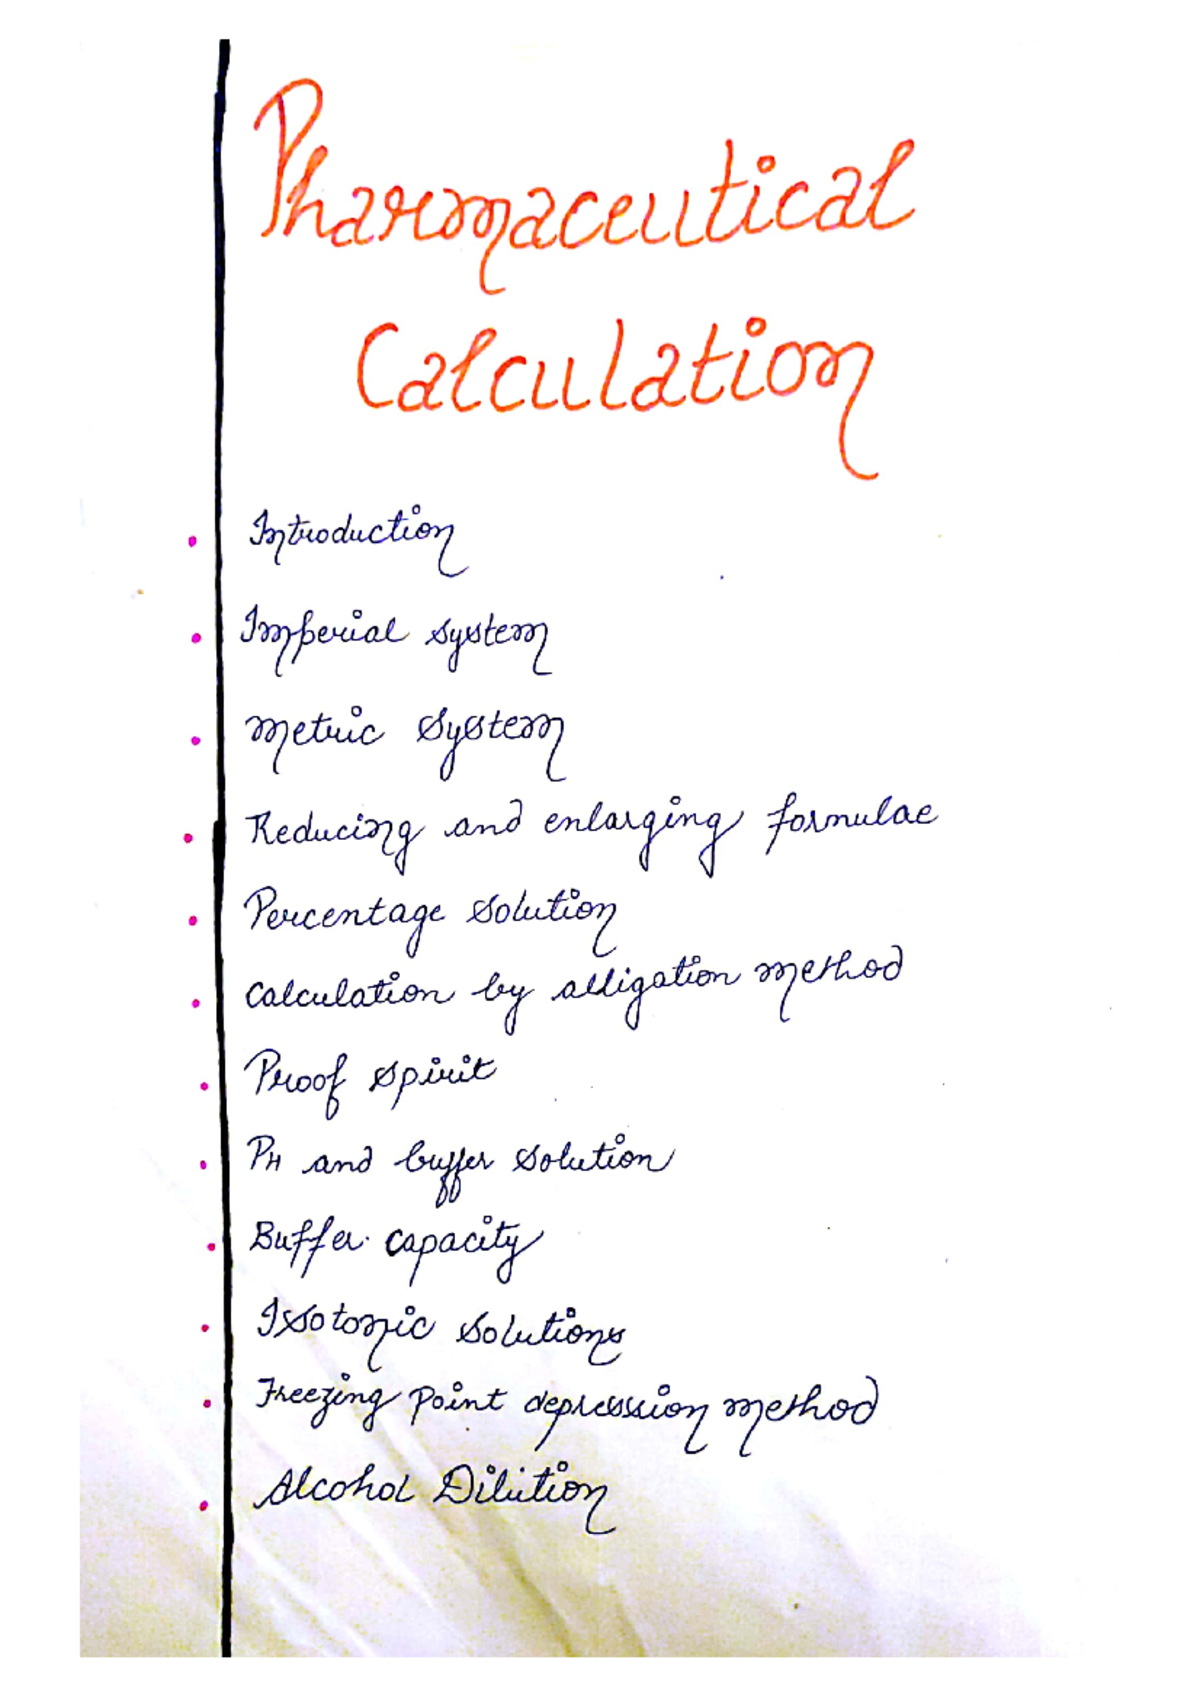 Pharmaceutical
Calculation
Introduction
Imperial system
Metric System
Reducing and enlarging formulae
Percentage solution
Calculation by alligation method
Proof spirit
PH and buffer solution
Buffer capacity
Isotonic solutions
Freezing point depression method
Alcohol Dilution